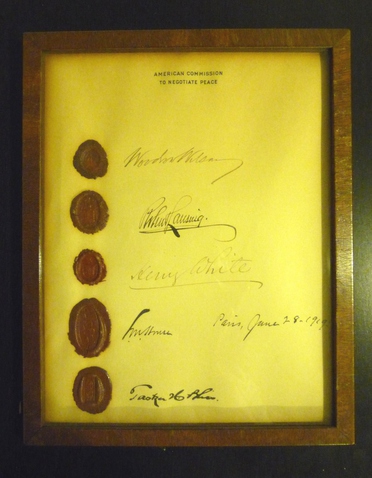 AMERICAN COMMISSION
TO NEGOTIATE PEACE
Woodrow Wilson
Robert Lansing.
Henry White
EM House Paris, June 28-1919.
Tasker H Bliss.